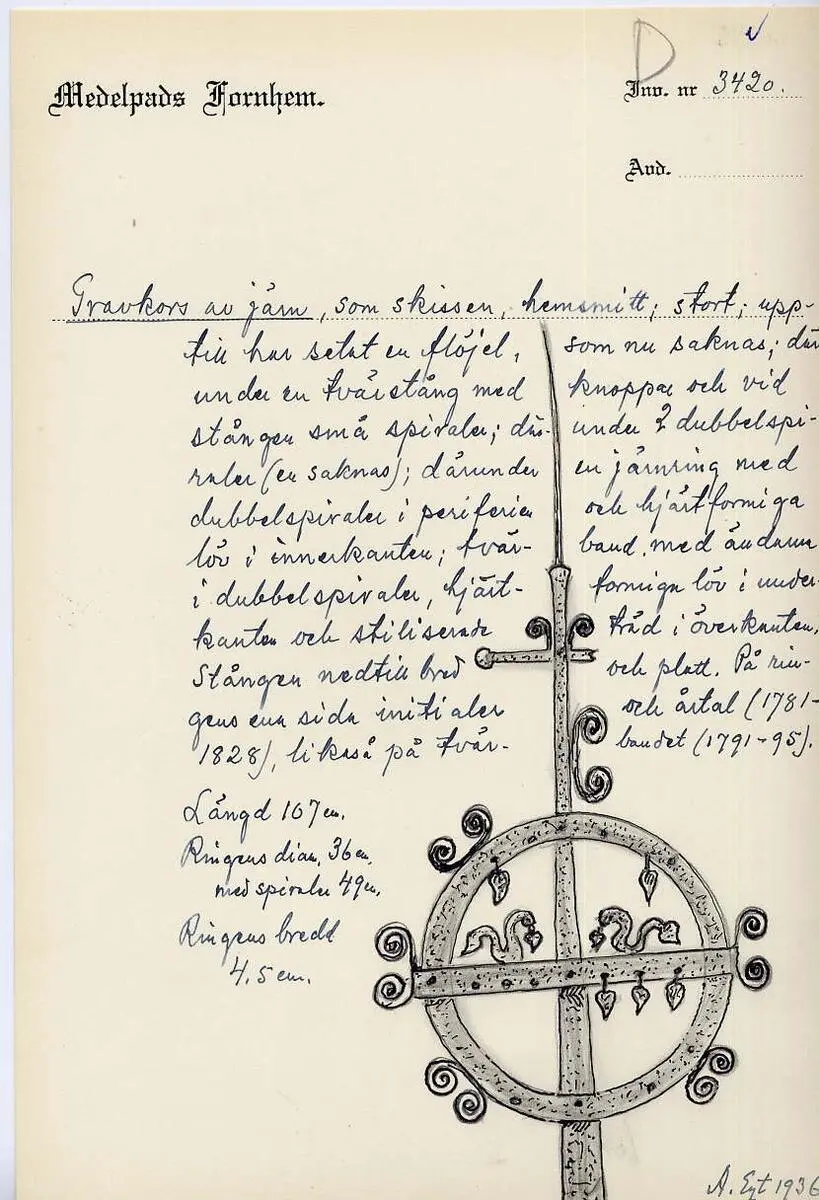 D
Medelpads Fornhem.
Inv. nr 3420.
Avd.
Gravkors av järn, som skissen, hemsmitt; stort; upp-
till har setat en flöjel, som nu saknas; där
under en tvärstång med knoppar och vid
stången små spiraler; där- under 2 dubbelspi-
raler (en saknas); därunder en järnring med
dubbelspiraler i periferien och hjärtformiga
löv i innerkanten; tvär- band, med ändarna
i dubbelspiraler, hjärt- formiga löv i under-
kanten och stiliserade träd i överkanten.
Stången nedtill bred och platt. På rin-
gens ena sida initialer och årtal (1781-
1828), likaså på tvär- bandet (1791-95).
Längd 107 cm.
Ringens diam. 36 cm.
med spiraler 49 cm.
Ringens bredd
4.5 cm.
1936